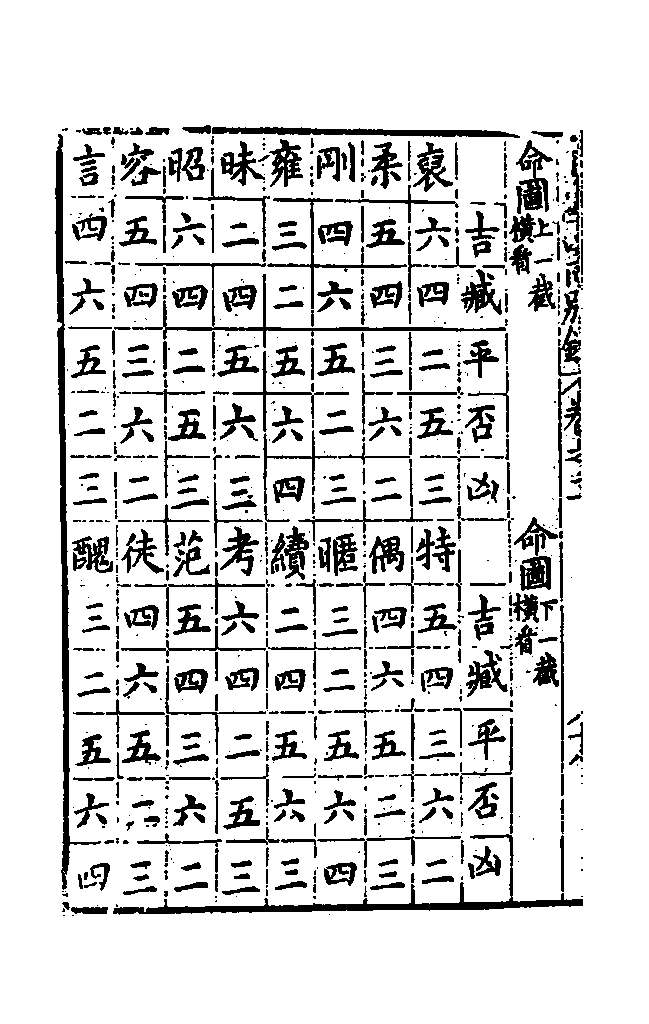 命圖上一截橫看 命圖下一截橫看
吉臧平否凶 吉臧平否凶
裒六四二五三 特五四三六二
柔五四三六二 偶四六五二三
剛四六五二三 暱三二五六四
雍三二五六四 續二四五六三
昧二四五六三 考六四二五三
昭六四二五三 范五四三六二
容五四三六二 徒四六五二三
言四六五二三 醜三二五六四